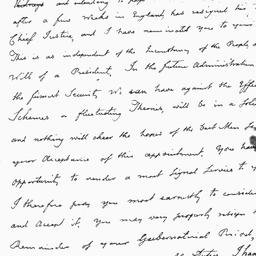 after a few Weeks in England, has resigned his
Chief Justice, and I have nominated you to your
This is as independent of the Inconstancy of the People as
Will of a President. In the future Administration
the firmest Security We can have against the Effects
Schemes or fluctuating Theories, will be in a Solid
and nothing will chear the hopes of the best Men
your Acceptance of this appointment. You have
opportunity to render a most Signal Service to y
I therefore pray you most earnestly to consider
and Accept it. you may very properly resign
Remainder of your Gubernatorial Period,